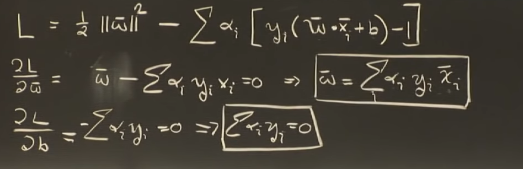 L = ½ ‖w̄‖² − ∑ αᵢ [yᵢ(w̄·x̄ᵢ + b) − 1]
∂L/∂w̄ = w̄ − ∑ αᵢ yᵢ xᵢ = 0 ⇒ w̄ = ∑ᵢ αᵢ yᵢ x̄ᵢ
∂L/∂b = −∑ αᵢ yᵢ = 0 ⇒ ∑ αᵢ yᵢ = 0